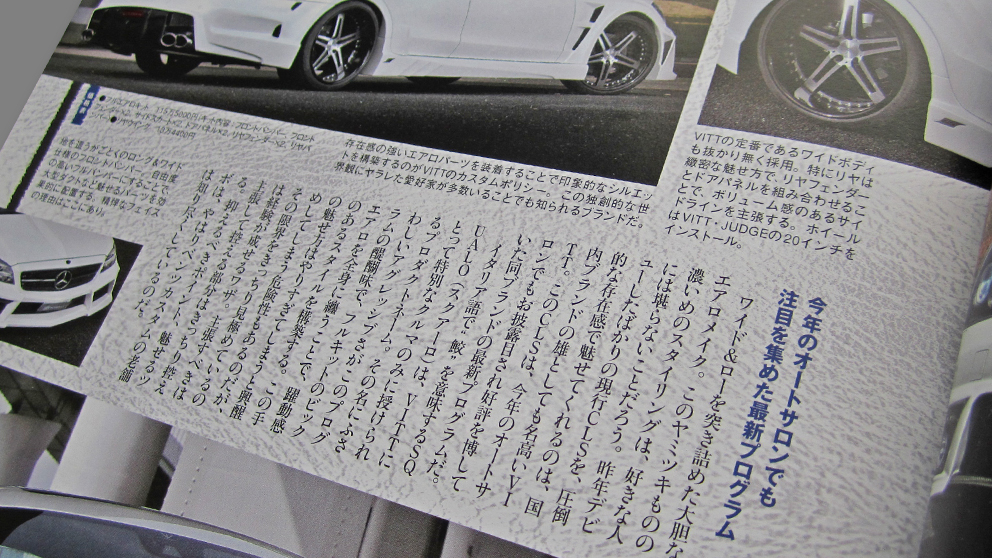 VITTの定番であるワイドボディ
も抜かり無く採用。特にリヤは
緻密な魅せ方で、リヤフェンダー
とドアパネルを組み合わせるこ
とで、ボリューム感のあるサイ
ドラインを主張する。ホイール
はVITT・JUDGEの20インチを
インストール。
存在感の強いエアロパーツを装着することで印象的なシルエッ
トを構築するのがVITTのカスタムポリシー。この独創的な世
界観にヤラレした愛好家が多数いることでも知られるブランドだ。
地を這うかごとくのロング&ワイド
仕様のフロントバンパー。自由度
の高いフルバンパーにすることで
大型ダクトなど魅せるパーツを効
果的に配置する。精悍なフェイス
の理由はここにあり。
今年のオートサロンでも
注目を集めた最新プログラム
ワイド&ローを突き詰めた大胆な
エアロメイク。このヤミツキものの
濃いめのスタイリングは、好きな人
には堪らないことだろう。昨年デビ
ューしたばかりの現行CLSを、圧倒
的な存在感で魅せてくれるのは、国
内ブランドの雄としても名高いVI
TT。このCLSは、今年のオートサ
ロンでもお披露目され好評を博して
いた同ブランドの最新プログラムだ。
イタリア語で"鮫"を意味するSQ
UALO(スクアーロ)は、VITTに
とって特別なクルマのみに授けられ
るプロダクトネーム。その名にふさ
わしいアグレッシブさが、このプログ
ラムの醍醐味で、フルキットのビック
エアロを全身に纏うことで、躍動感
のあるスタイルを構築する。この手
の魅せ方はやりすぎてしまうと興醒
めしてしまう危険性もあるのだが、
その限界をきっちり見極めているの
は経験が成せるワザ。主張すべきは
主張して控えるべきはきっちり控え
る。抑えるべきポイント、魅せるツ
ボは、やはりベンツカスタムの老舗
は知り尽くしているのだ。